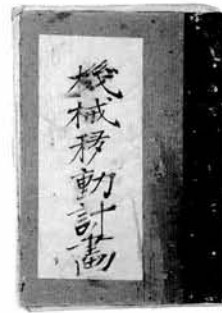 機械移動計畫